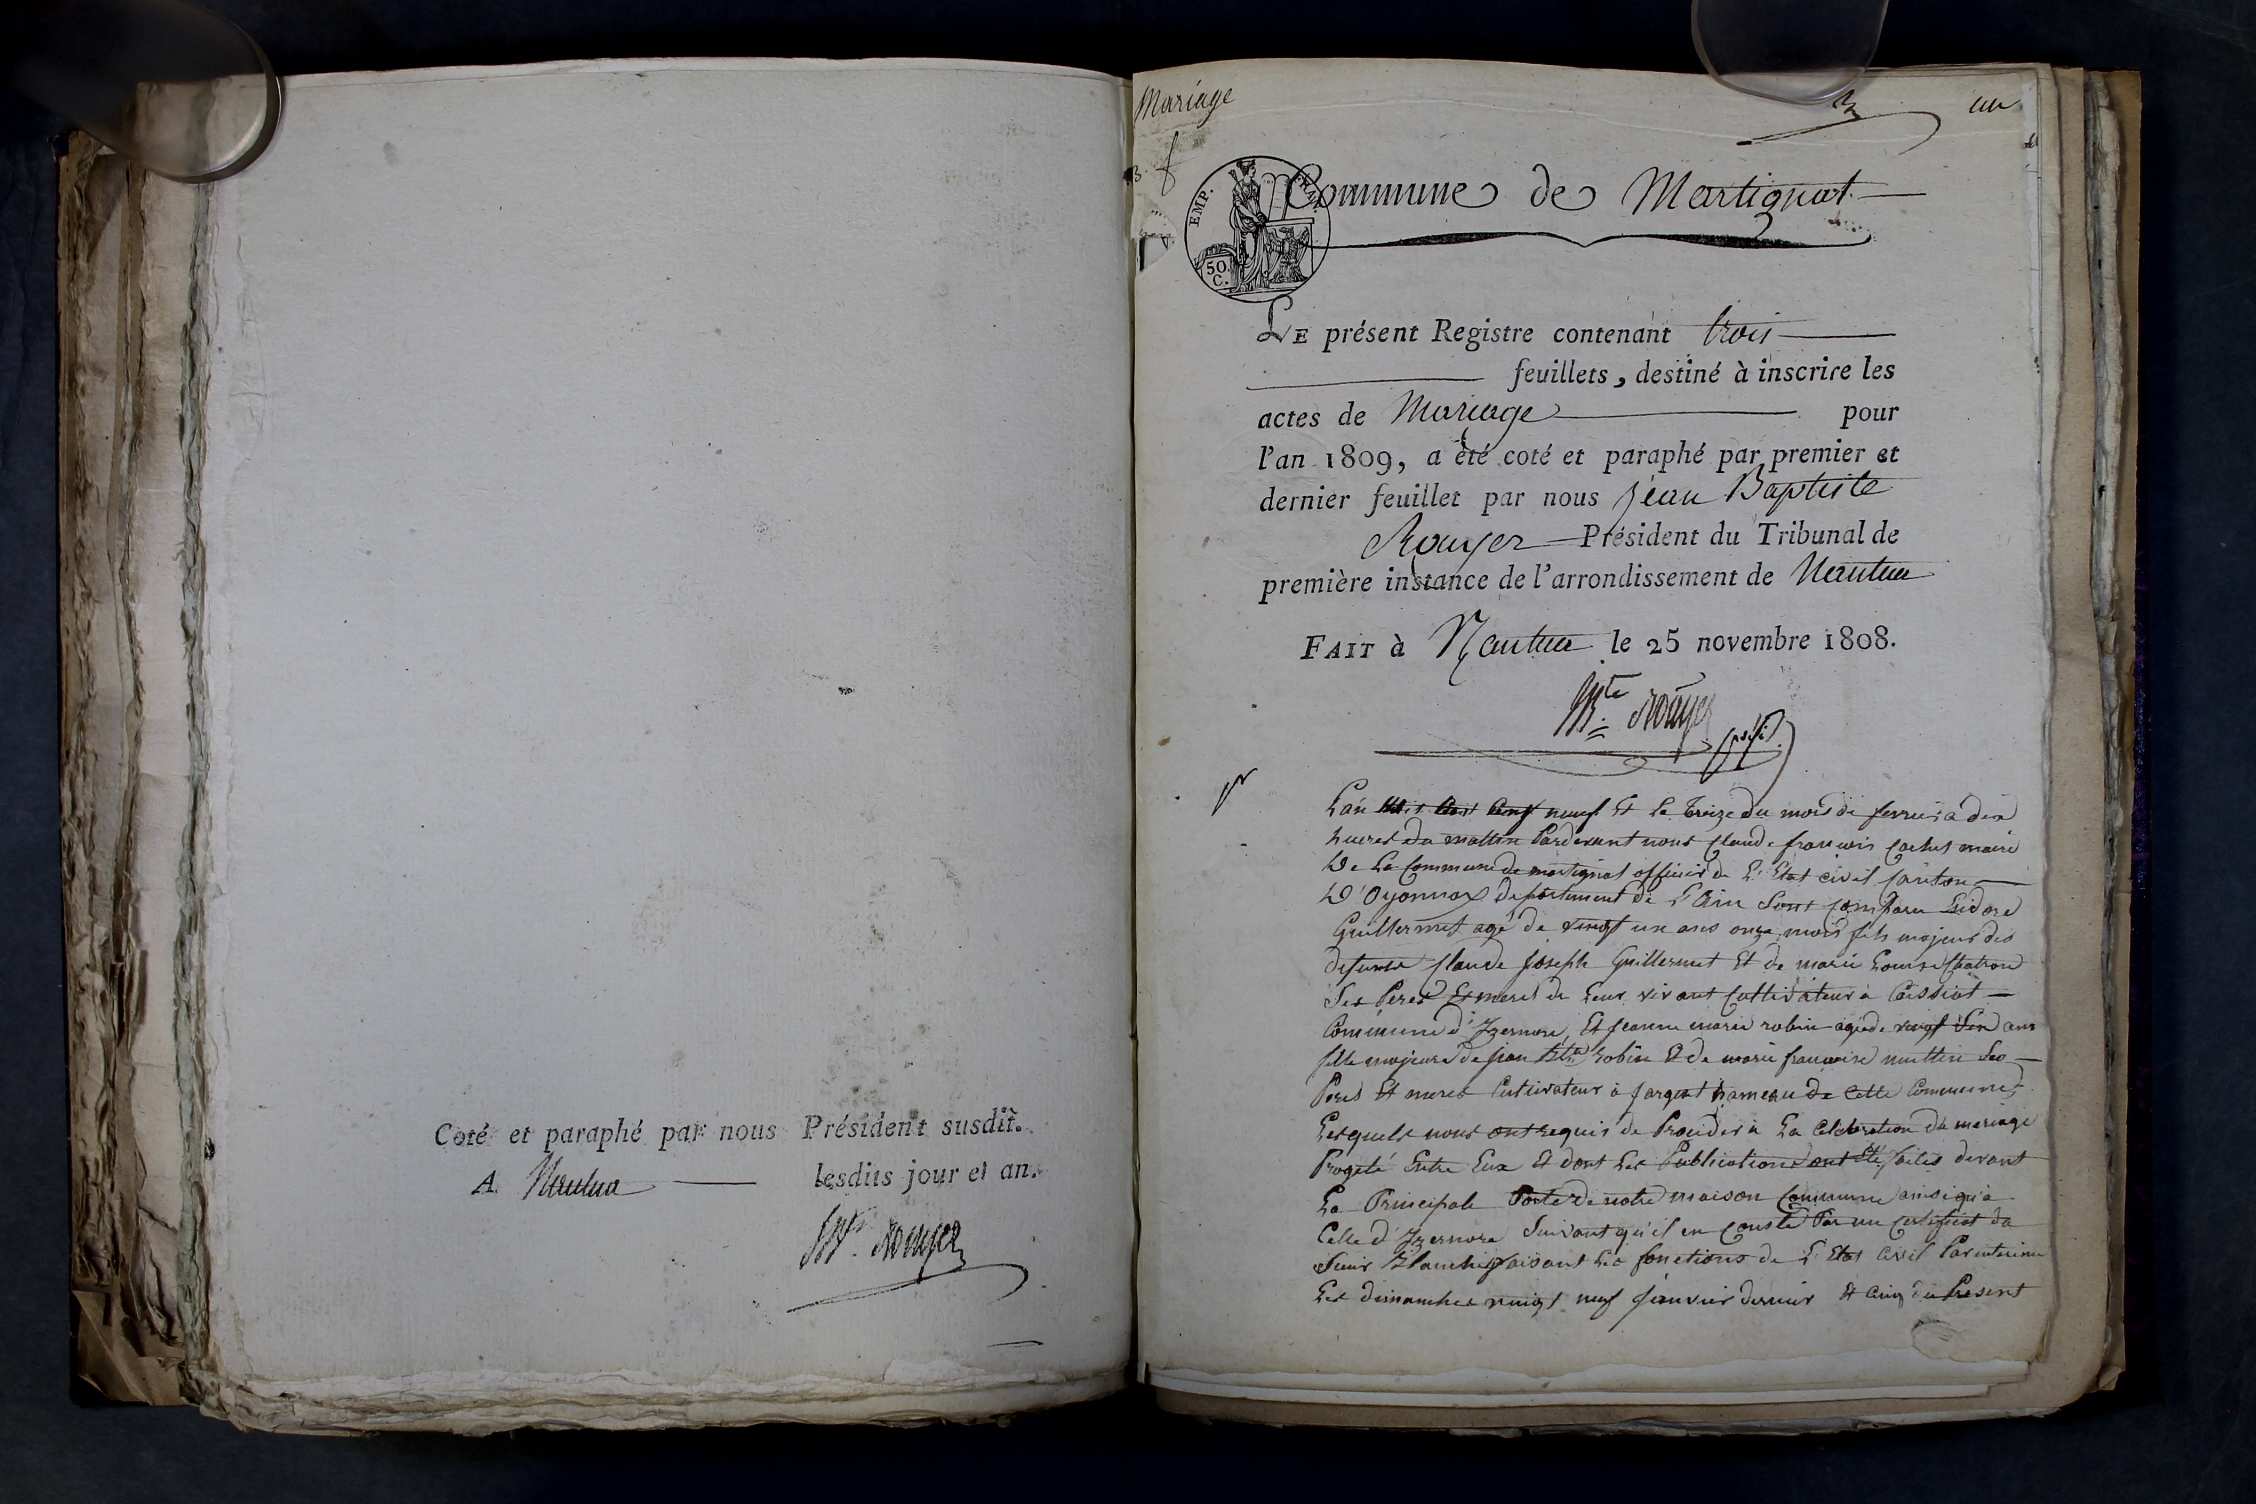 Coté et paraphé par nous Président susdit.
A. Nantua lesdits jour et an.
Bte. Rouyer
Mariage
3 un
EMP. FRAN.
50 C.
Commune de Martignat
LE présent Registre contenant trois
feuillets, destiné à inscrire les
actes de Mariage pour
l'an 1809, a été coté et paraphé par premier et
dernier feuillet par nous Jean Baptiste
Rouyer Président du Tribunal de
première instance de l'arrondissement de Nantua
FAIT à Nantua le 25 novembre 1808.
Bte. Rouyer
L'an mil huit cent neuf Et le treize du mois de fevrier a dix
heures du mattin Pardevant nous Claude françois maire
De La Commune de martignat officier de L'Etat civil Canton
D'Oyonnax departement de L'Ain Sont comparu Isidore
Guillermet agé de vingt un ans onze mois fils majeur des
defunts Claude Joseph Guillermet Et de marie Louise
Ses Peres Et meres de Leur vivant Cultivateur à Ceissiat
Commune d'Izernore, Et jeanne marie robin agée de vingt Six ans
fille majeure de jean Bte robin Et de marie françoise Ses
Peres Et meres Cultivateur à jargeat hameau de Cette Commune
Lesquels nous ont requis de Proceder à La Celebration du mariage
Projeté Entre Eux Et dont Les Publications ont Eté faites devant
La Principale Porte de notre maison Commune ainsi qu'à
Celle d'Izernore Suivant qu'il en Conste Par un Certificat du
Sieur faisant Les fonctions de L'Etat Civil Par interim
Les dimanches vingt neuf janvier dernier Et Cinq du Present